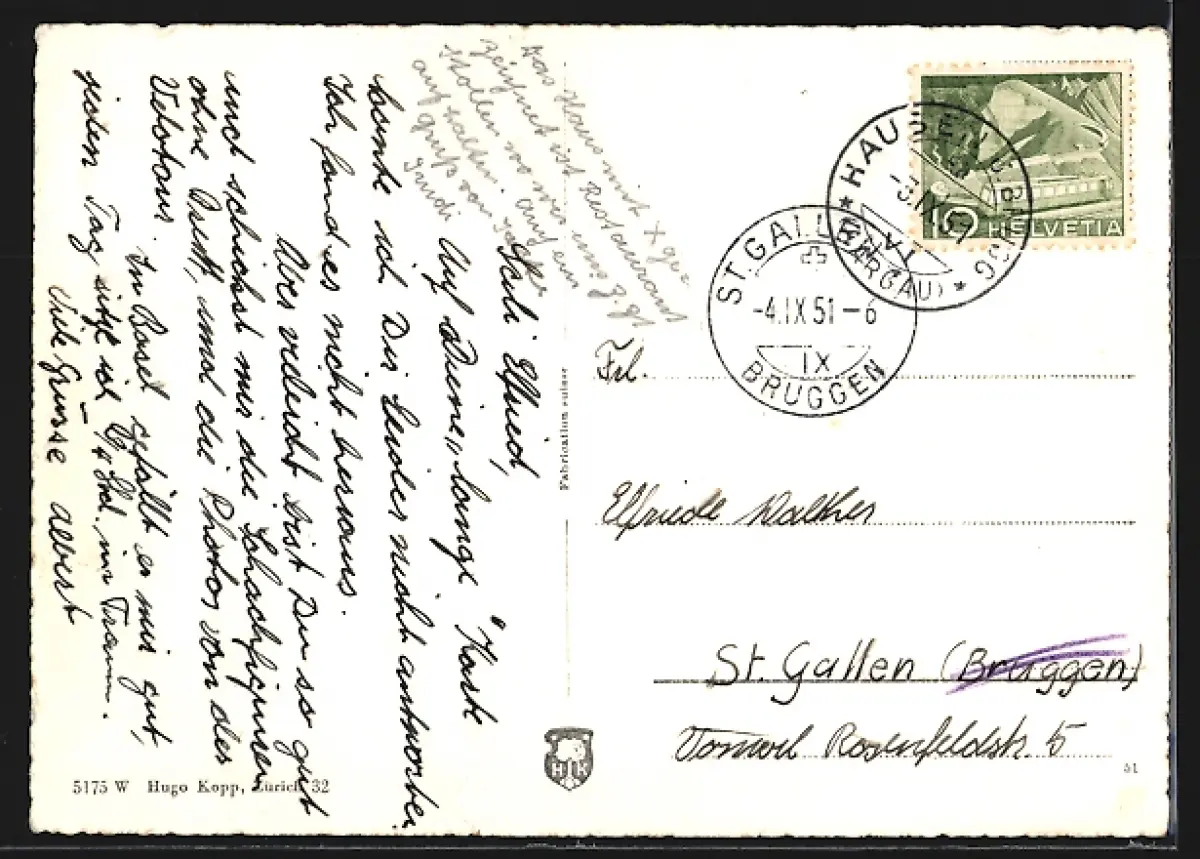 Das Haus mit X ge-
zeichnet ist Restaurant
Stollen wo wir uns z. Zt
aufhalten. auf ein
gruss von
Sali Elfried,
Auf Deine "lange" Karte
konnte ich Dir leider nicht antworten
Ich fand es nicht heraus.
Aber vieleicht bist Du so gut
und schickst mir die Schachfiguren
ohne Brett, und die Photos von der
Velotour. Im Basel gefällt es mir gut,
jeden Tag sitze ich Std. im Tram.
Viele Grüsse Albert
Fabrication suisse
HELVETIA
10
HAUSEN B. BRUGG
(AARGAU)
ST. GALLEN
-4.IX 51-6
IX
BRUGGEN
Frl.
Elfriede Walther
St. Gallen (Bruggen)
Rosenfeldstr. 5
51
HK
5175 W Hugo Kopp, Zürich 32